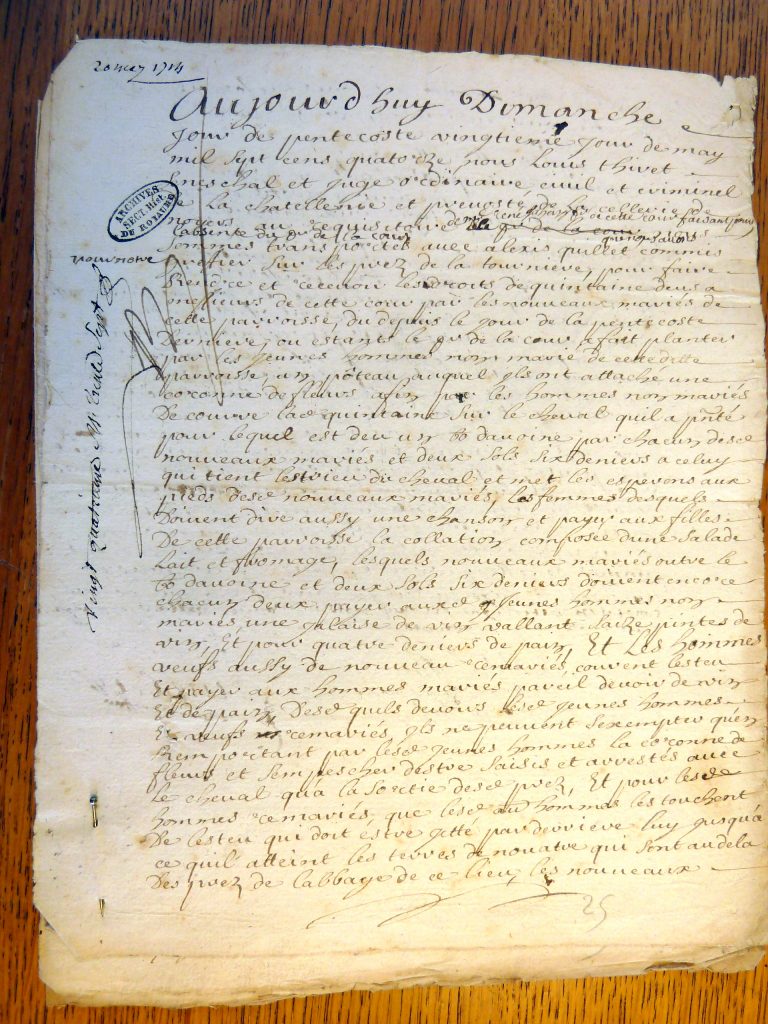 20 may 1714
Aujourd huy Dimanche
Jour de pentecoste vingtieme Jour de may
mil sept cens quatorze nous Louis Thivet
seneschal et Juge ordinaire, civil et criminel
de la chatellenie et prevosté de la cellerie de
noyers, au requisitoire de mre rené cette cour faisant pour
labsente du pr de la cour nous
ARCHIVES
SECT. HIST.
DU ROYAUME
sommes transportés avec alexis pullet commis
greffier sur les prez de la tourniere, pour faire
pour notre
Rendre et recevoir les droits de quintaine deus a
messieurs de cette cour par les nouveaux mariés de
cette parroisse, du depuis le jour de la pentecoste
Derniere, ou estants le pr de la cour a fait planter
par les jeunes hommes non marié de cette dite
parroisse, un poteau, auquel ils ont attaché une
coronne de fleurs, afin par les hommes non mariés
De courre lad quintaine sur le cheval quil a pnté
pour lequel est deu un bo davoine par chacun desd
nouveaux mariés et deux sols six deniers a celuy
qui tient lestrieu du cheval et met les esperons aux
pieds desd nouveaux mariés, les femmes desquels
Doivent dire aussy une chanson et payer aux filles
De cette parroisse la collation composée dune salade
lait et fromage, lesquels nouveaux mariés outre le
bo davoine et deux sols six deniers doivent encore
chacun deux payer auxd jeunes hommes non
mariés une jalaise de vin vallant saize pintes de
vin, Et pour quatre deniers de pain, Et Les hommes
veufs aussy de nouveau remariés, courent lesteu
Et payer aux hommes mariés pareil devoir de vin
Et de pain Desd quils devous lesd jeunes hommes
Et veufs remariés, Ils ne peuvent sexempter quen
Remportant par lesd jeunes hommes la coronne de
fleurs et sempescher destre saisis et arrestés avec
Le cheval qua la sortie desd prez, Et pour lesd
hommes remariés, que lesd hommes les touchent
De lesteu qui doit estre jetté par derriere luy jusqua
ce quil atteint les terres de nouatre qui sont audela
Des prez de labbaye de ce lieu, les nouveaux
25
vingt quatrieme